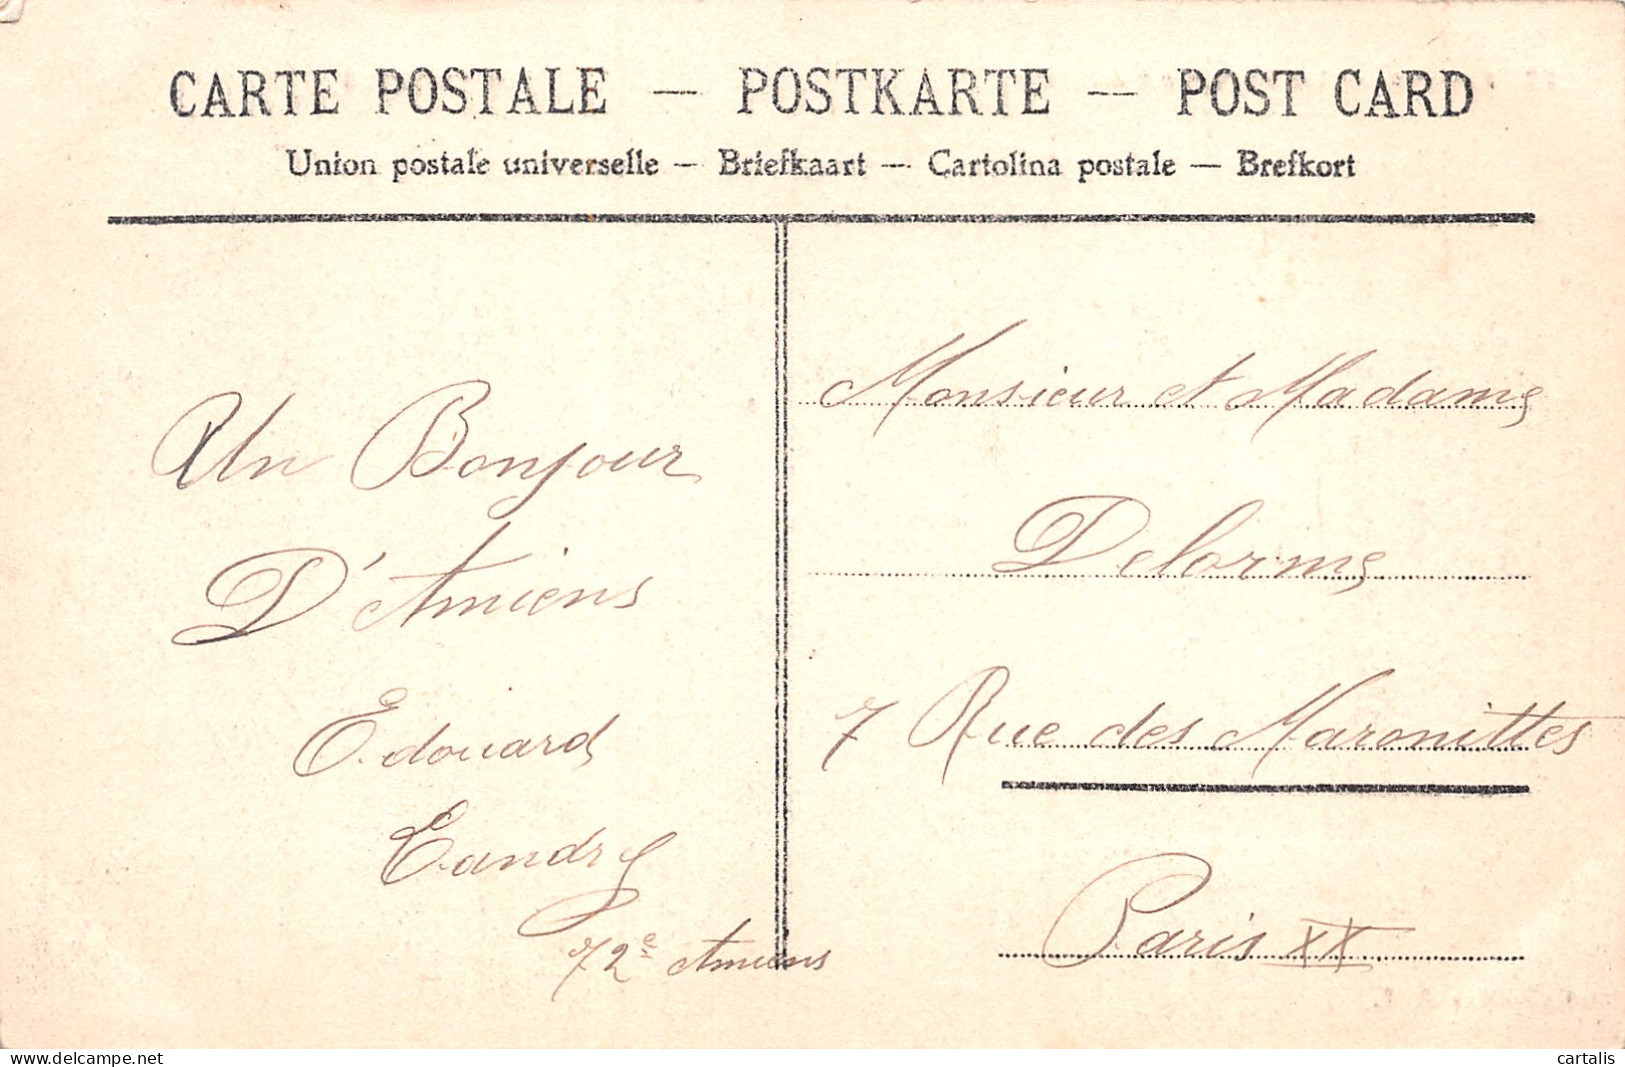 CARTE POSTALE — POSTKARTE — POST CARD
Union postale universelle — Briefkaart — Cartolina postale — Brefkort
Un Bonjour
D'Amiens
Edouard
72e Amiens
Monsieur et Madame
Delorme
7 Rue des Maronittes
Paris XX
delcampe.net
cartalis